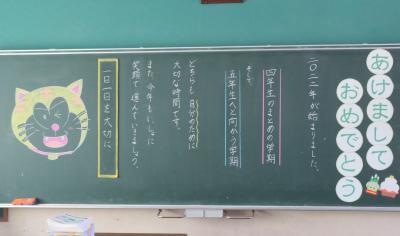 あけまして
おめでとう
二〇二二年が始まりました。
四年生のまとめの学期
そして
五年生へと向かう学期
どちらも自分のために
大切な時間です。
また今年もいっしょに
笑顔で進んでいきましょう。
一日一日を大切に